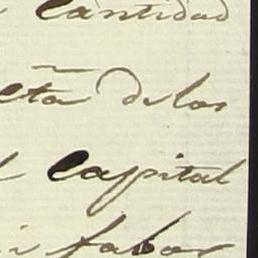 cantidad
cta de los
capital
fabor